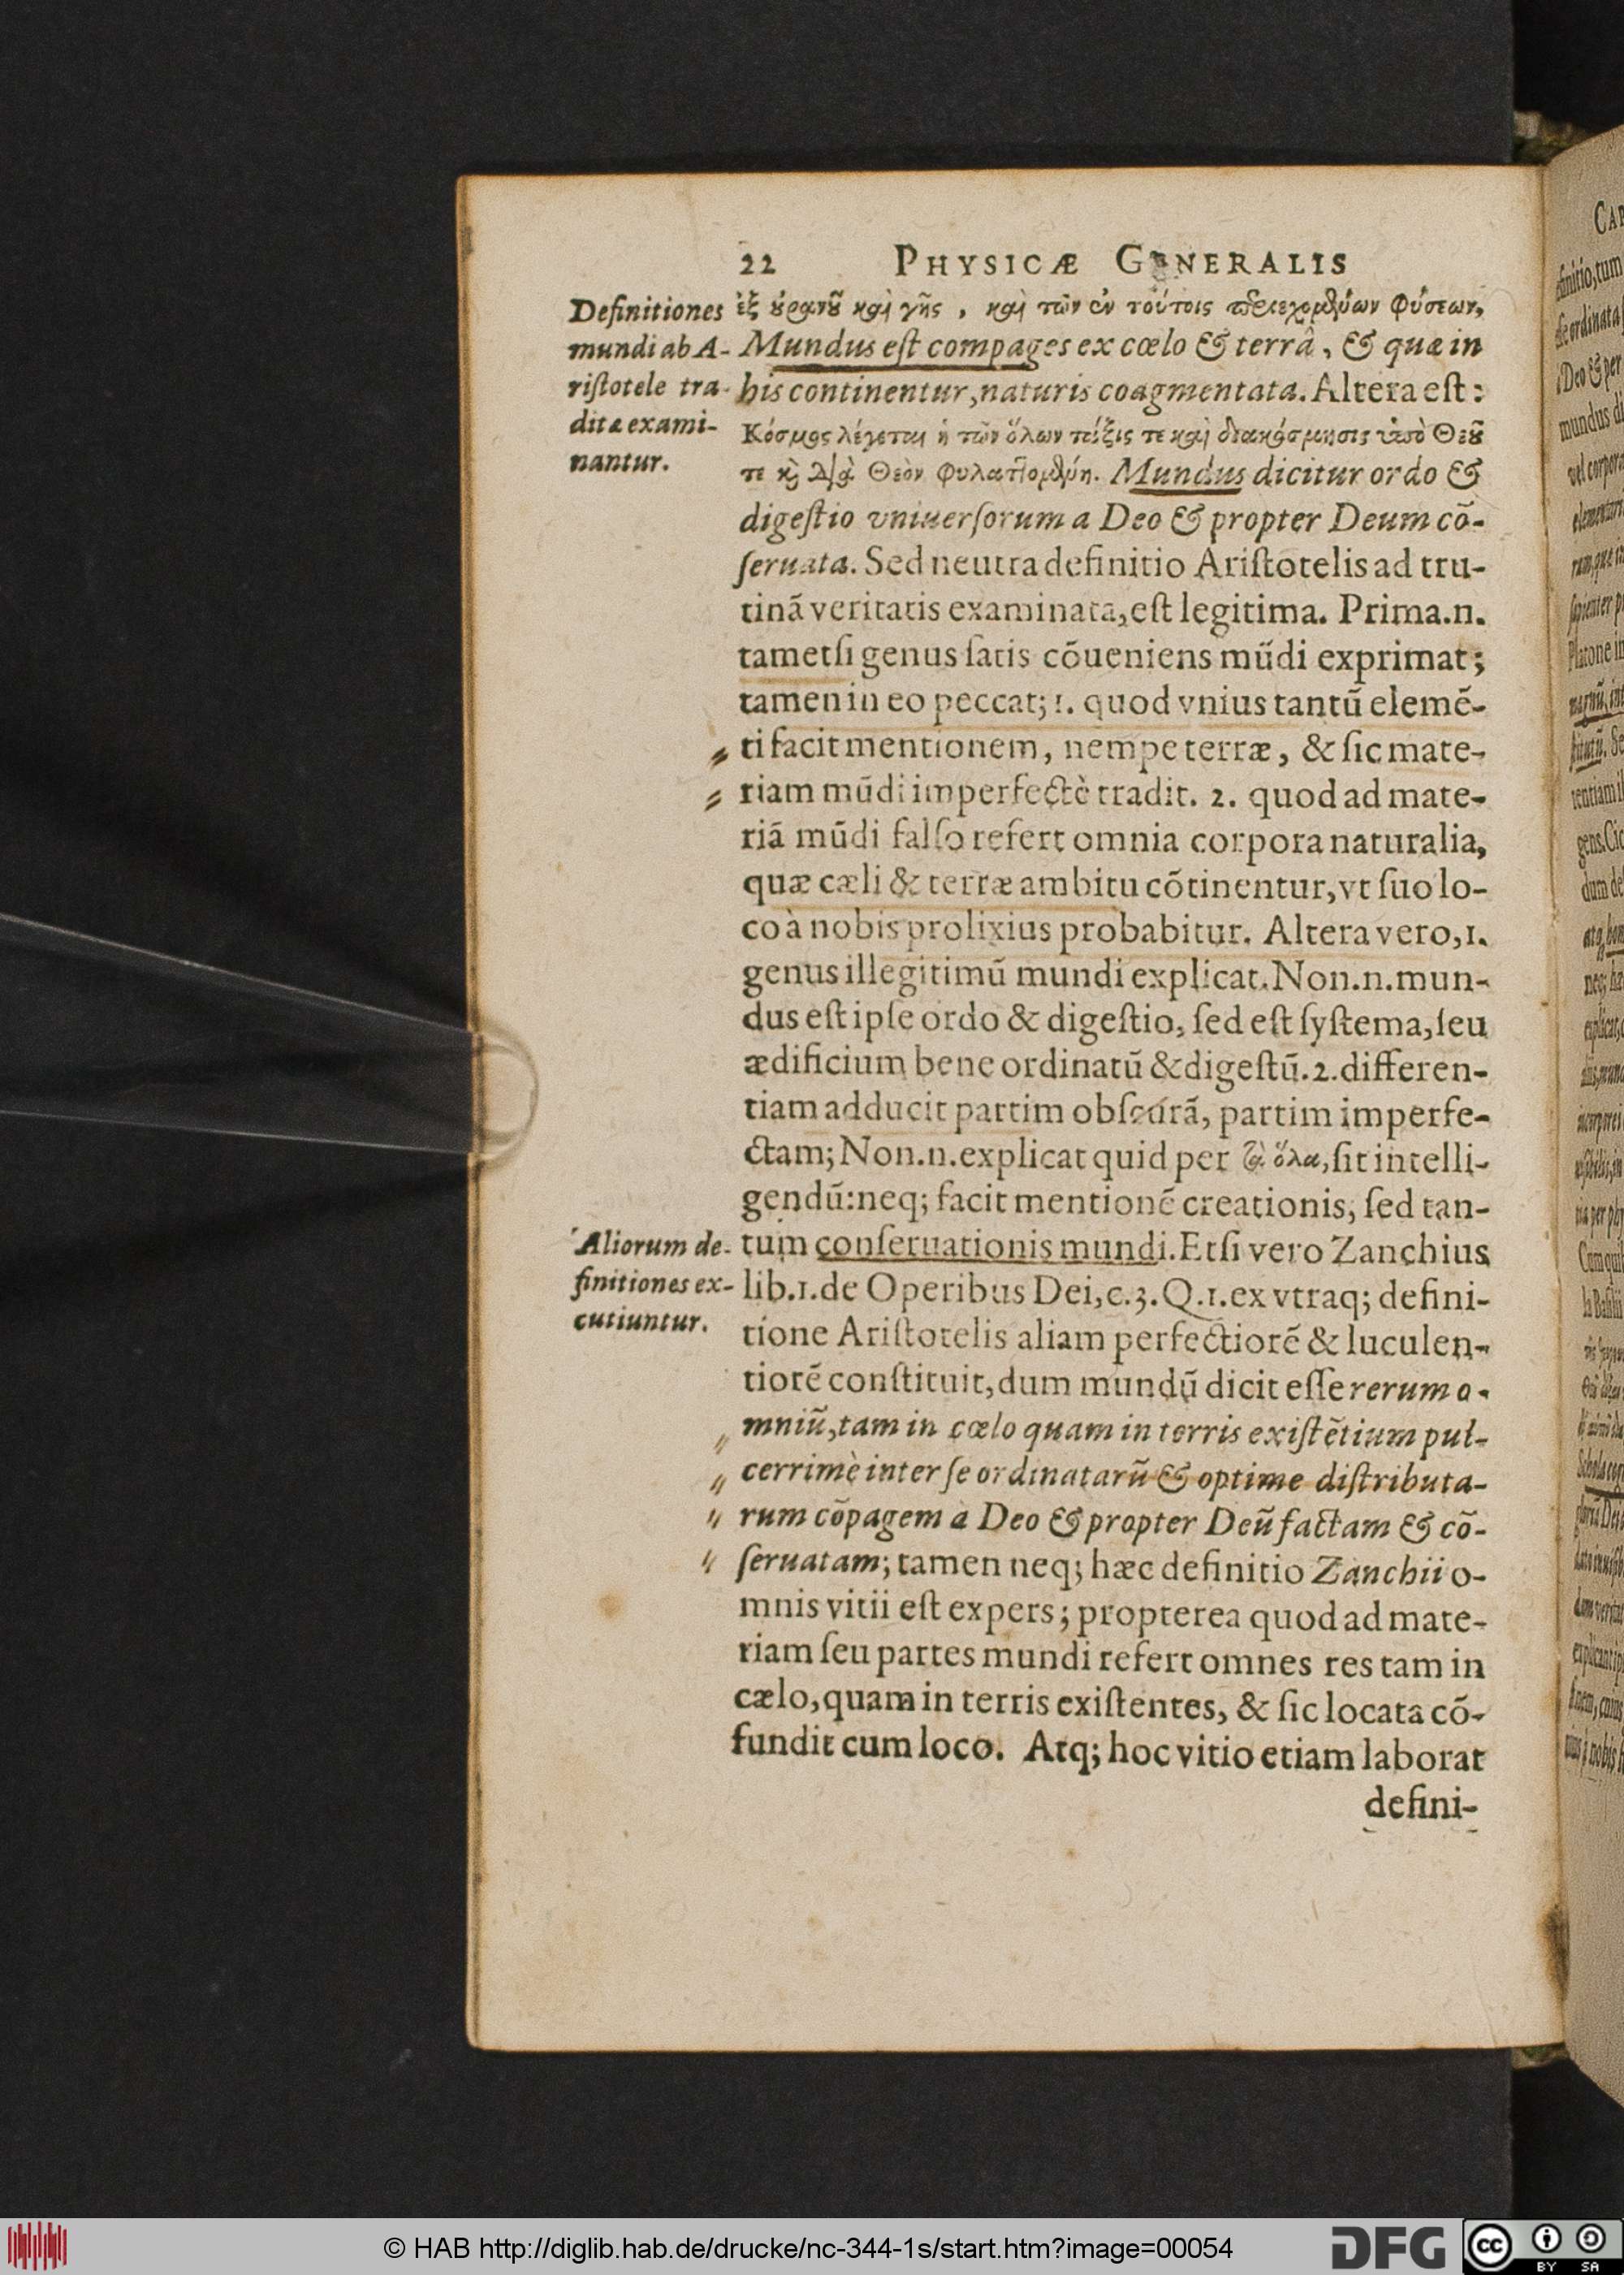 22 PHYSICÆ GENERALIS
Definitiones
mundi ab A-
ristotele tra-
ditæ exami-
nantur.
ἐξ ȣ̓ρανȣ͂ καὶ γῆς, καὶ τῶν ἐν τούτοις περιεχομένων φύσεων,
Mundus eſt compages ex cœlo & terrâ, & quæ in
his continentur, naturis coagmentata. Altera eſt:
Κόσμος λέγεται ἡ τῶν ὅλων τάξις τε καὶ διακόσμησις ὑπὸ Θεȣ͂
τε καὶ διὰ Θεὸν φυλαττομένη. Mundus dicitur ordo &
digeſtio vniuerſorum a Deo & propter Deum cõ-
ſeruata. Sed neutra definitio Ariſtotelis ad tru-
tinã veritatis examinata, eſt legitima. Prima.n.
tametſi genus ſatis cõueniens mũdi exprimat;
tamen in eo peccat; 1. quod vnius tantũ elemẽ-
ti facit mentionem, nempe terræ, & ſic mate-
riam mũdi imperfectè tradit. 2. quod ad mate-
riã mũdi falſo refert omnia corpora naturalia,
quæ cæli & terræ ambitu cõtinentur, vt ſuo lo-
co à nobis prolixius probabitur. Altera vero, 1.
genus illegitimũ mundi explicat. Non.n.mun-
dus eſt ipſe ordo & digeſtio, ſed eſt ſyſtema, ſeu
ædificium bene ordinatũ & digeſtũ. 2. differen-
tiam adducit partim obſcurã, partim imperfe-
ctam; Non.n.explicat quid per τὰ ὅλα, ſit intelli-
gendũ: neq; facit mentionẽ creationis, ſed tan-
Aliorum de-
finitiones ex-
cutiuntur.
tum conſeruationis mundi. Etſi vero Zanchius
lib.1.de Operibus Dei, c.3.Q.1.ex vtraq; defini-
tione Ariſtotelis aliam perfectiorẽ & luculen-
tiorẽ conſtituit, dum mundũ dicit eſſe rerum o-
mniũ, tam in cœlo quam in terris exiſtẽtium pul-
cerrimè inter ſe ordinatarũ & optime diſtributa-
rum cõpagem à Deo & propter Deũ factam & cõ-
ſeruatam; tamen neq; hæc definitio Zanchii o-
mnis vitii eſt expers; propterea quod ad mate-
riam ſeu partes mundi refert omnes res tam in
cælo, quam in terris exiſtentes, & ſic locata cõ-
fundit cum loco. Atq; hoc vitio etiam laborat
defini-
© HAB http://diglib.hab.de/drucke/nc-344-1s/start.htm?image=00054
DFG
cc
BY SA